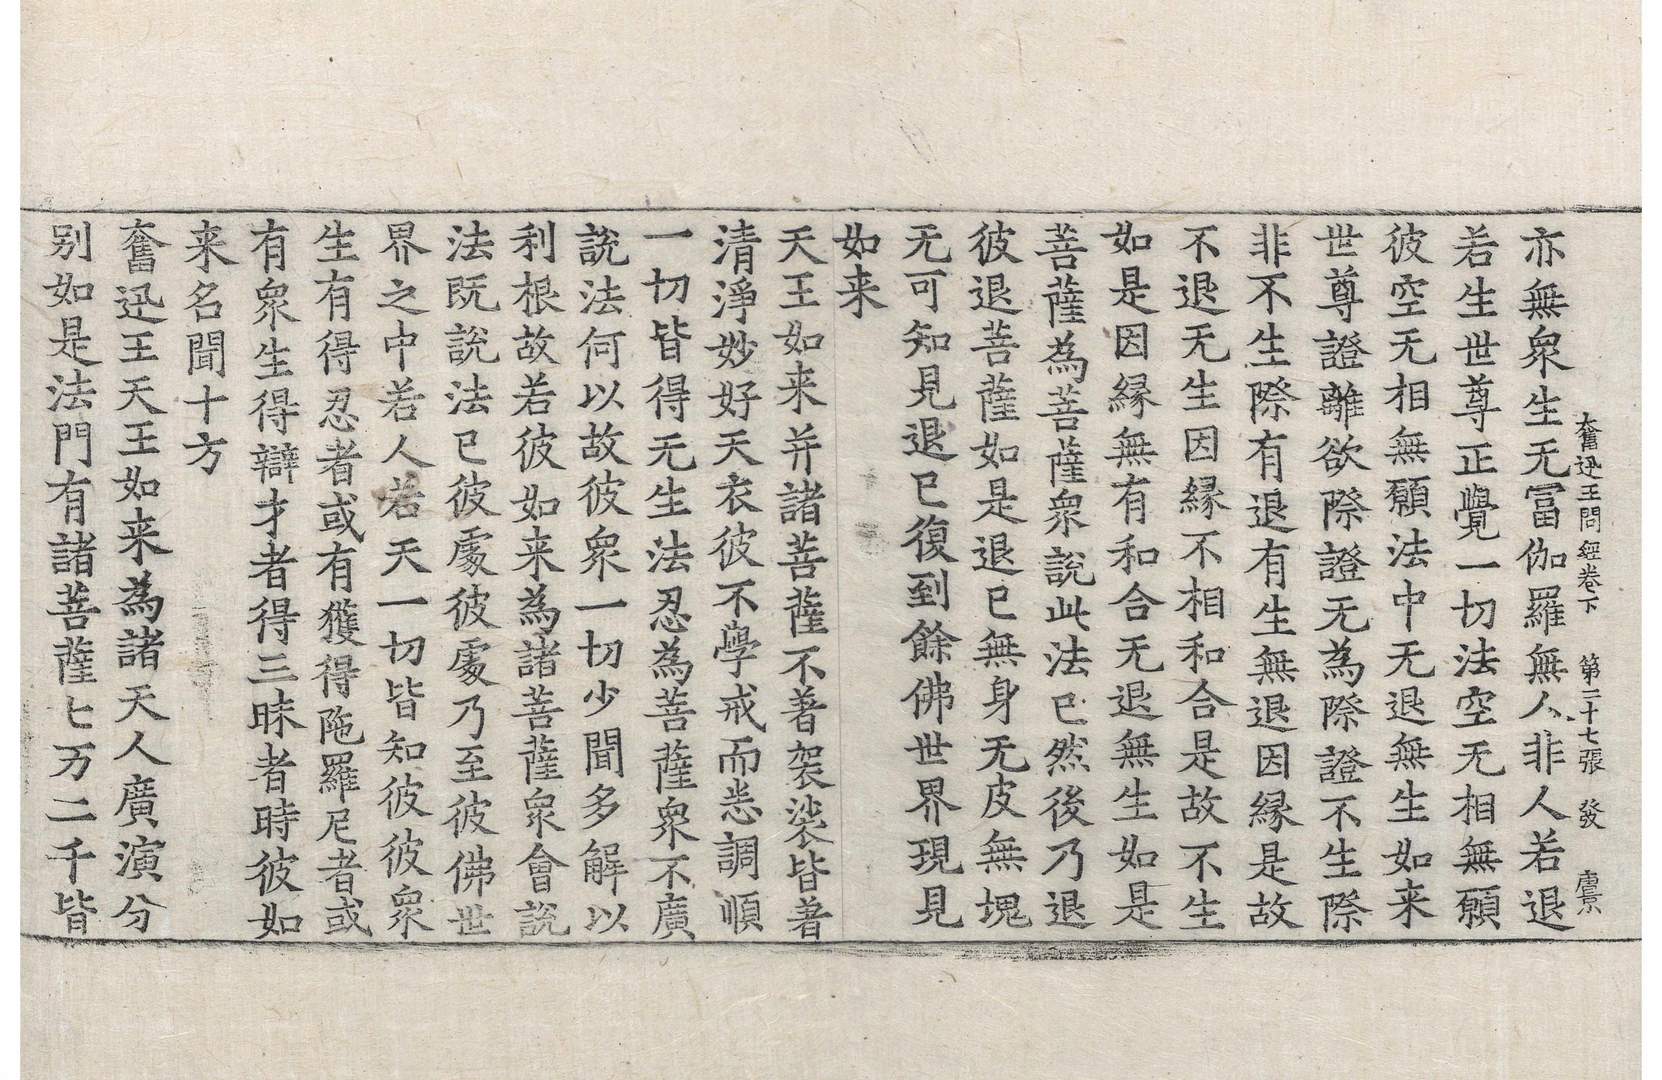 奮迅王問經卷下 第二十七張 發
亦無衆生无冨伽羅無人非人若退
若生世尊正覺一切法空无相無願
彼空无相無願法中无退無生如来
世尊證離欲際證无為際證不生際
非不生際有退有生無退因縁是故
不退无生因縁不相和合是故不生
如是因縁無有和合无退無生如是
菩薩為菩薩衆說此法已然後乃退
彼退菩薩如是退已無身无皮無塊
无可知見退已復到餘佛世界現見
如来
天王如来并諸菩薩不著袈裟皆著
清淨妙好天衣彼不學戒而悉調順
一切皆得无生法忍為菩薩衆不廣
說法何以故彼衆一切少聞多解以
利根故若彼如来為諸菩薩衆會說
法既說法已彼處彼處乃至彼佛世
界之中若人若天一切皆知彼彼衆
生有得忍者或有獲得陁羅尼者或
有衆生得辯才者得三昧者時彼如
来名聞十方
奮迅王天王如来為諸天人廣演分
别如是法門有諸菩薩七万二千皆